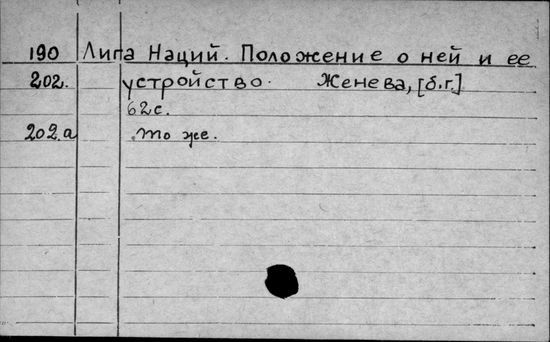 190 Лига Наций. Положение о ней и ее
202. устройство. Женева, [б.г.]
62с.
202.а то же.